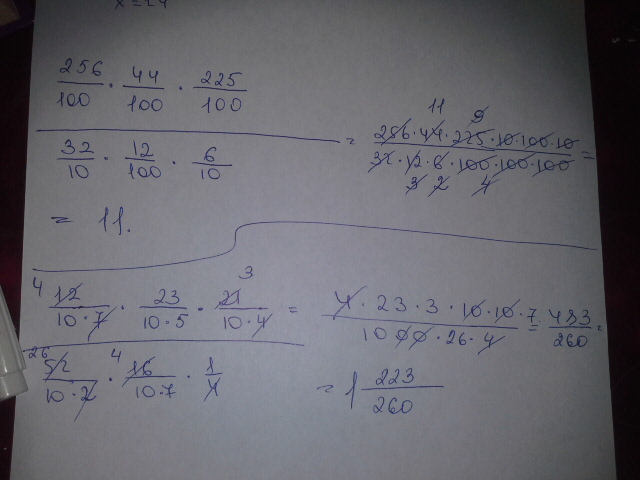 x = 14
256/100 · 44/100 · 225/100
32/10 · 12/100 · 6/10
=
11 9
256·44·225·10·100·10
32·12·6·100·100·100
=
3 2 4
= 11.
4 12/10·7 · 23/10·5 · 3 21/10·4 =
26 52/10·2 · 4 16/10·7 · 1/1
4·23·3·10·10·7
1000·26·4
= 483/260 =
= 1 223/260